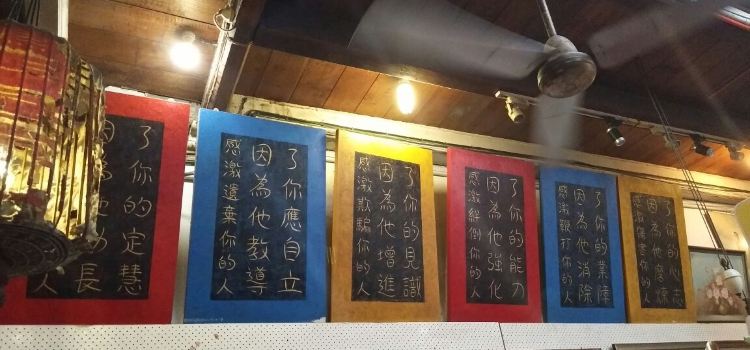 人
因為他助長
了你的定慧
感激遺棄你的人
因為他教導
了你應自立
感激欺騙你的人
因為他增進
了你的見識
感激絆倒你的人
因為他強化
了你的能力
感激鞭打你的人
因為他消除
了你的業障
感激傷害你的人
因為他磨煉
了你的心志